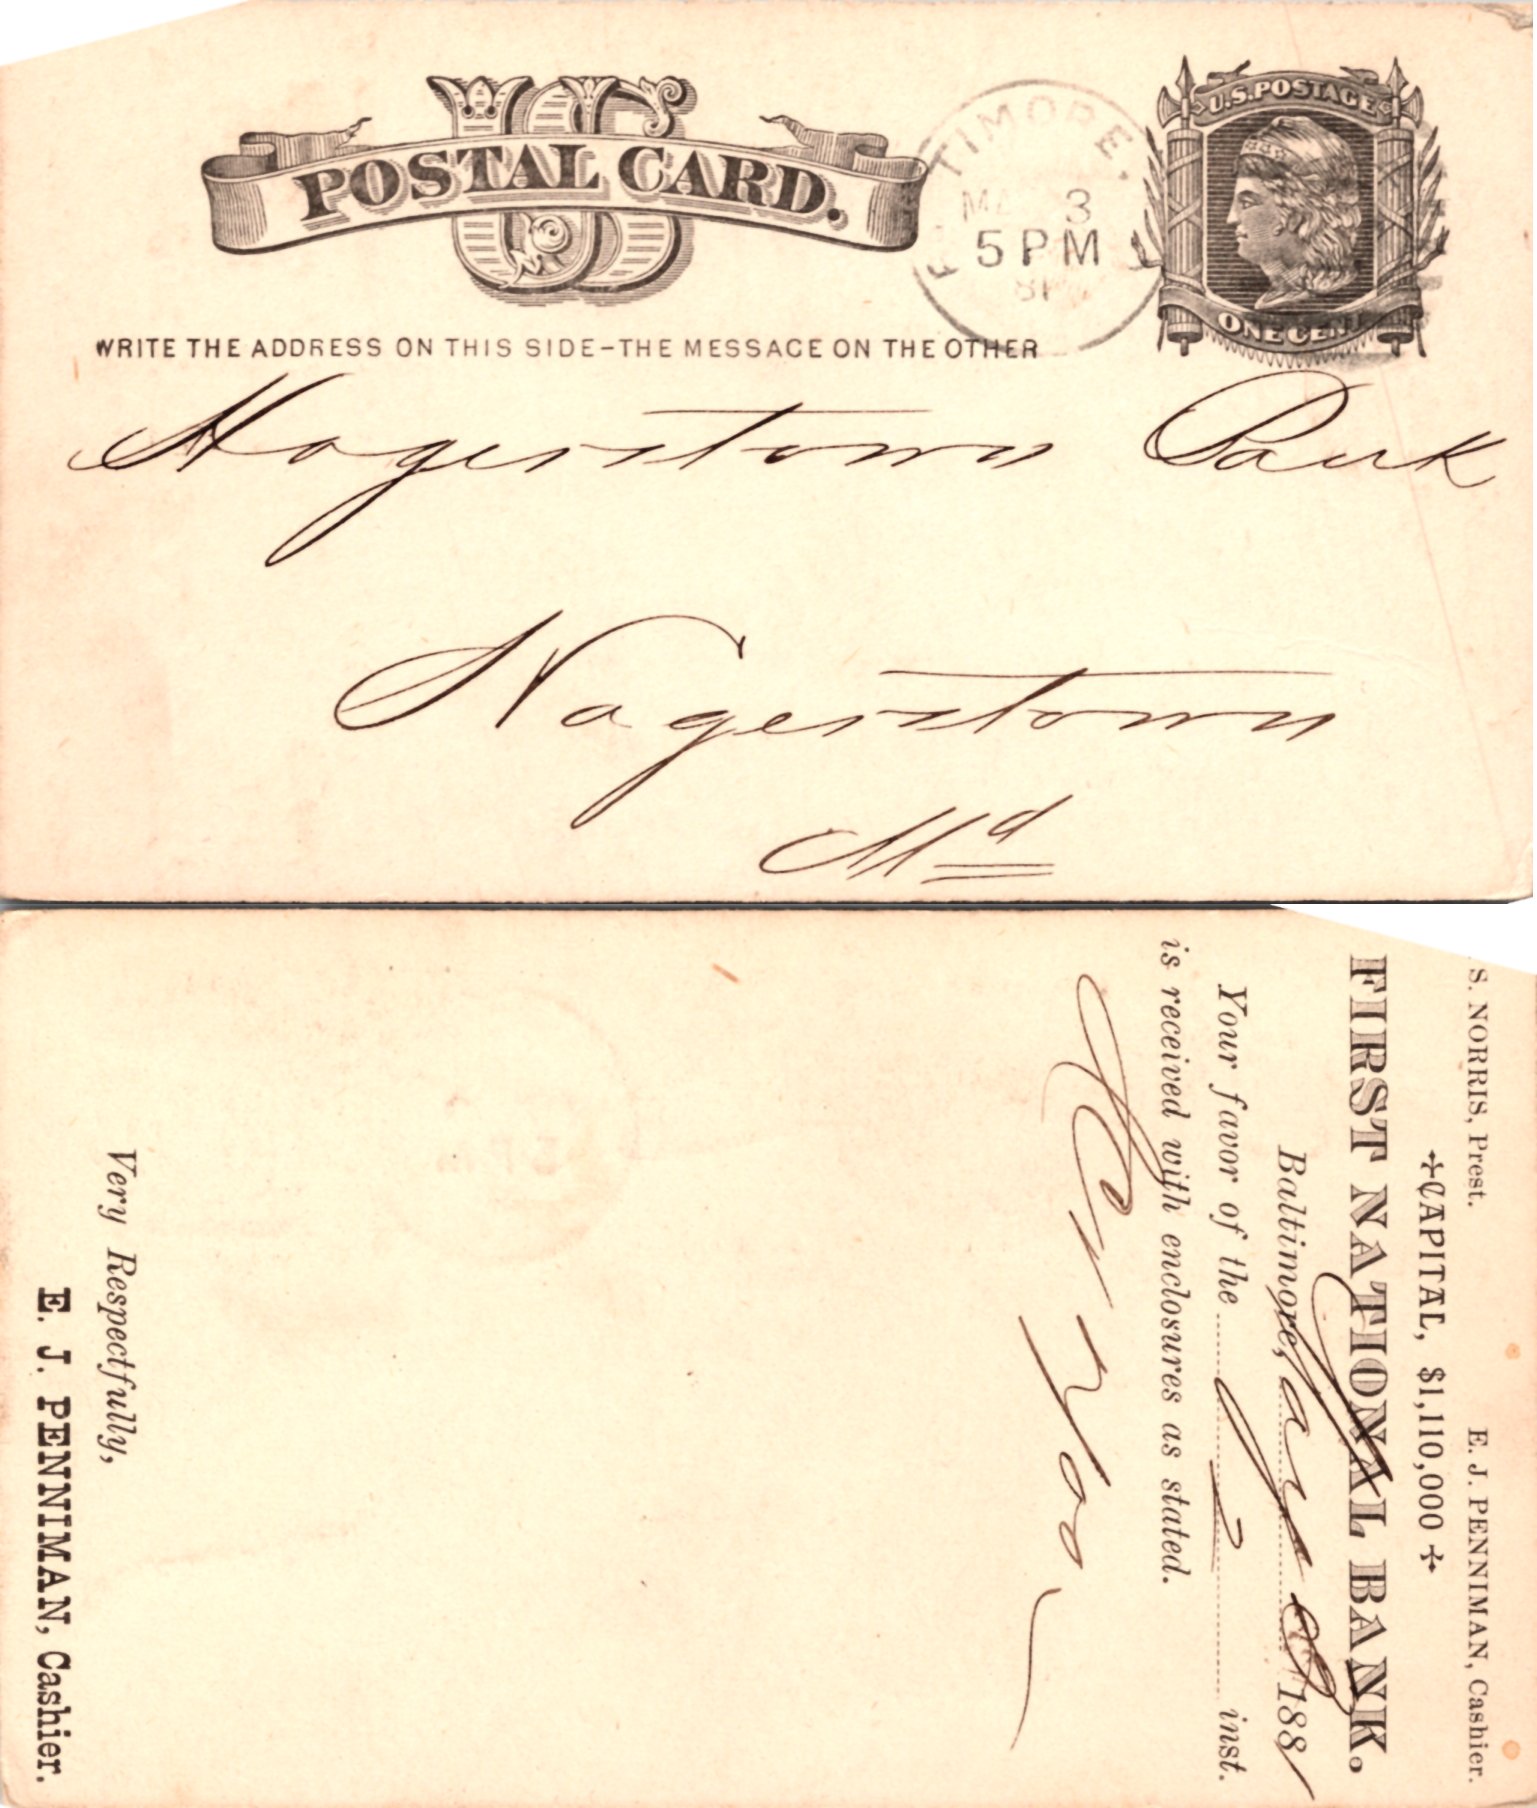 US
POSTAL CARD.
TIMORE.
3
5 PM
81
U.S. POSTAGE
ONE CENT
WRITE THE ADDRESS ON THIS SIDE-THE MESSAGE ON THE OTHER
Hagerstown Bank
Hagerstown
Md
S. NORRIS, Prest. E. J. PENNIMAN, Cashier.
CAPITAL, $1,110,000
FIRST NATIONAL BANK.
Baltimore, 188
Your favor of the 2 inst.
is received with enclosures as stated.
Very Respectfully,
E. J. PENNIMAN, Cashier.